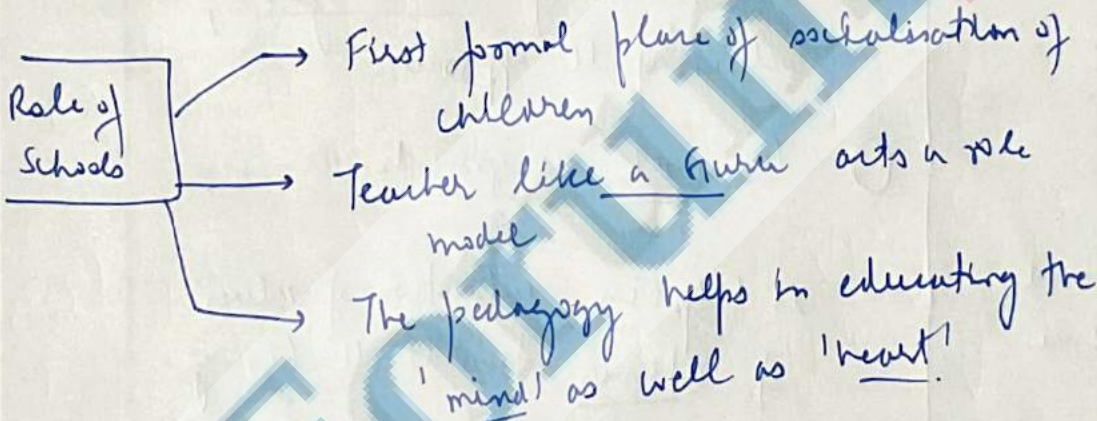 Role of
Schools
First formal place of socialisation of
children
Teacher like a Guru acts a role
model
The pedagogy helps in educating the
'mind' as well as 'heart'.
forum